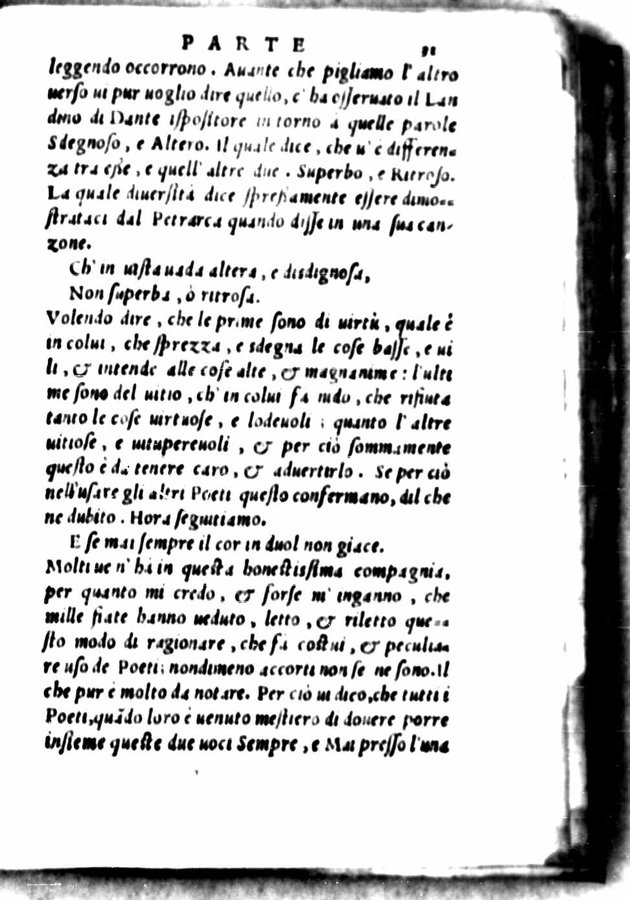 PARTE 31
leggendo occorrono. Auante che pigliamo l'altro
uerso ui pur uoglio dire quello, c'ha osseruato il Lan
dino di Dante ispositore intorno à quelle parole
Sdegnoso, e Altero. Il quale dice, che u'è differen-
za tra esse, e quell'altre due. Superbo, e Ritroso.
La quale diuersità dice spressamente essere dimo-
strataci dal Petrarca quando disse in una sua can-
zone.
Ch'in uista uada altera, e disdignosa,
Non superba, ò ritrosa.
Volendo dire, che le prime sono di uirtù, quale è
in colui, che sprezza, e sdegna le cose basse, e ui
li, & intende alle cose alte, & magnanime: l'ulti
me sono del uitio, ch'in colui fa nido, che rifiuta
tanto le cose uirtuose, e lodeuoli; quanto l'altre
uitiose, e uitupereuoli, & per ciò sommamente
questo è da tenere caro, & aduertirlo. Se per ciò
nell'usare gli altri Poeti questo confermano, dil che
ne dubito. Hora seguitiamo.
E se mai sempre il cor in duol non giace.
Molti ue n'hà in questa honestissima compagnia,
per quanto mi credo, & forse m'inganno, che
mille fiate hanno ueduto, letto, & riletto que-
sto modo di ragionare, che fà costui, & peculia
re uso de Poeti; nondimeno accorti non se ne sono. Il
che pur è molto da notare. Per ciò ui dico, che tutti i
Poeti, quãdo loro è uenuto mestiero di douere porre
insieme queste due uoci Sempre, e Mai presso l'una